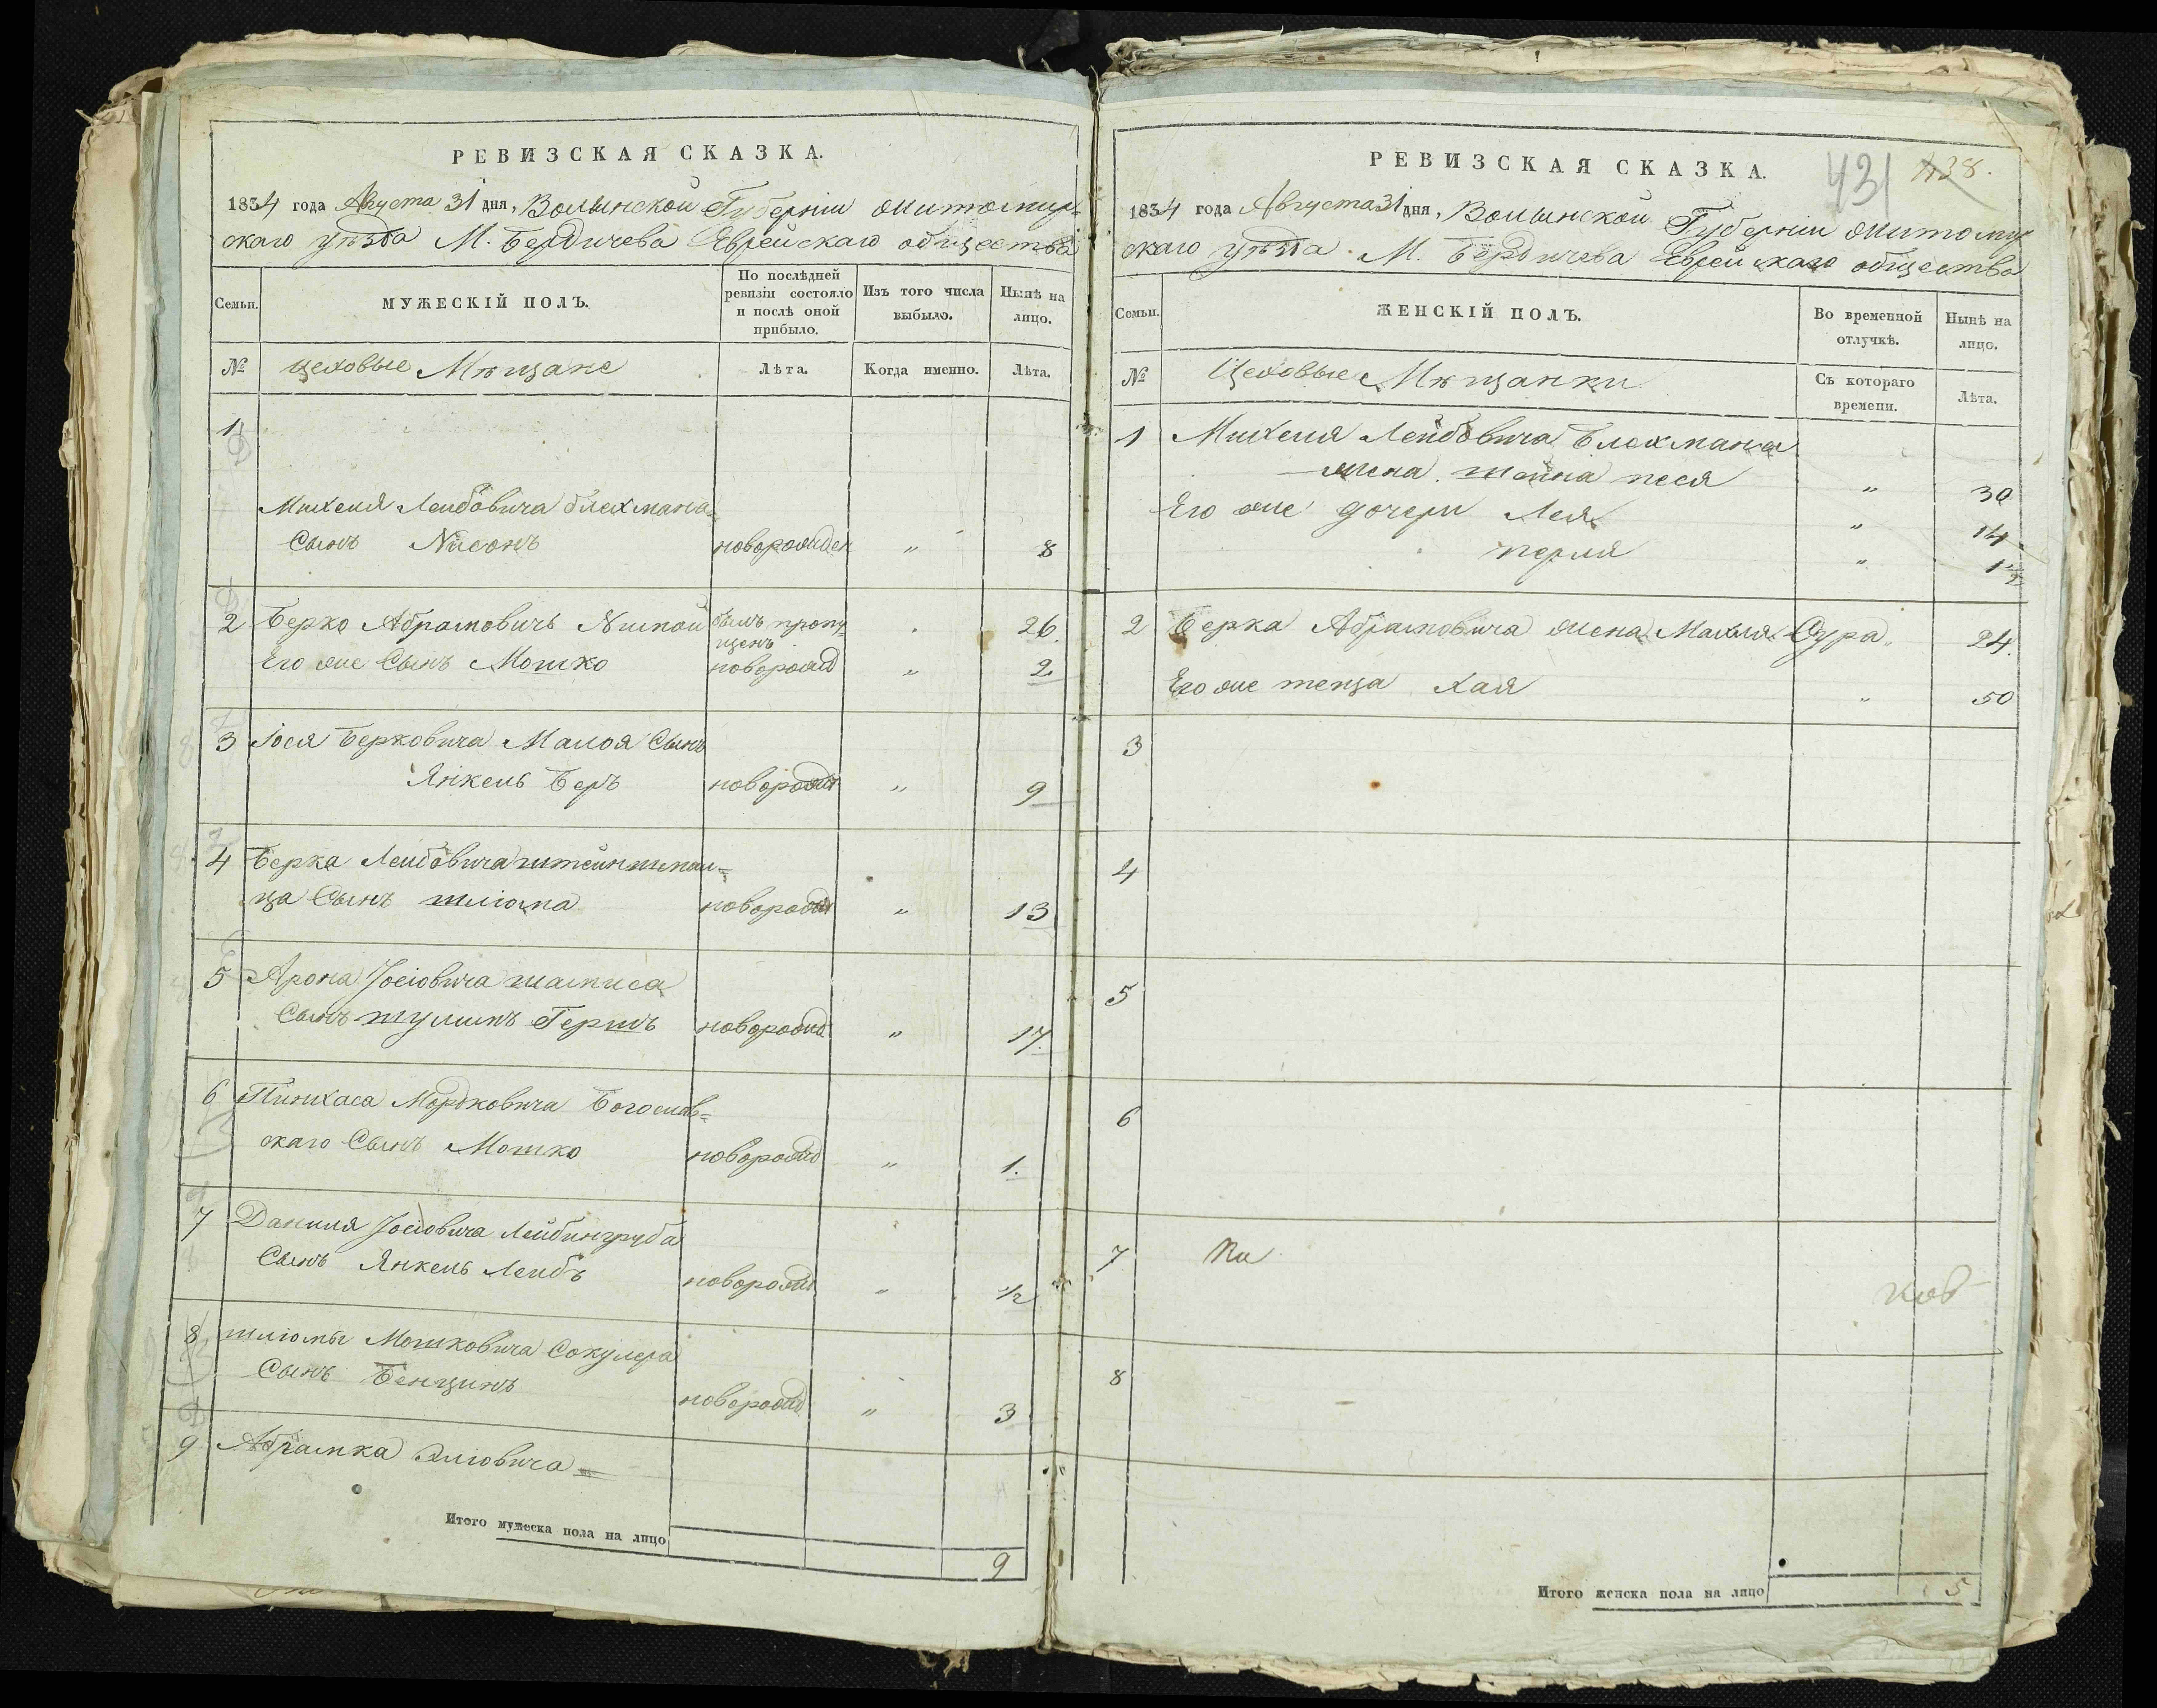 РЕВИЗСКАЯ СКАЗКА.
1834 года Августа 31 дня, Волынской Губерніи Житомир-
скаго уѣзда М. Бердичева Еврейскаго общества
Семьи.
МУЖЕСКІЙ ПОЛЪ.
По послѣдней
ревизіи состояло
и послѣ оной
прибыло.
Изъ того числа
выбыло.
Нынѣ на
лицо.
№
цеховые Мѣщане
Лѣта.
Когда именно.
Лѣта.
1
Михеля Лейбовича Блехмана
Сынъ Нисонъ новорожден " 8
2 Берко Абрамовичь былъ пропу- 26.
щенъ
Его же Сынъ Мошко новорожд " 2
3 Іося Берковича Малоя Сынъ
Янкель Беръ новорожд " 9
4 Берка Лейбовича
ца Сынъ Шліома новорожд " 13
5 Арона Іосіовича
Сынъ Шулимъ Гершъ новорожд " 17.
6 Пинхаса Мордковича Богослав-
скаго Сынъ Мошко новорожд " 1.
7 Даниля Іосіовича Лейбингруба
Сынъ Янкель Лейбъ новорожд " 1/2
8 Шліомы Мошковича Сокулера
Сынъ Бенцинъ новорожд " 3
9 Абрамка Эліовича
Итого мужеска пола на лицо 9
431 438.
РЕВИЗСКАЯ СКАЗКА.
1834 года Августа 31 дня, Волынской Губерніи Житомир
скаго уѣзда М. Бердичева Еврейскаго общества
Семьи.
ЖЕНСКІЙ ПОЛЪ.
Во временной
отлучкѣ.
Нынѣ на
лицо.
№
Цеховые Мѣщанки
Съ котораго
времени.
Лѣта.
1 Михеля Лейбовича Блехмана
жена Шейна Песя " 30
Его же дочери Лея " 14
Перля " 1 1/2
2 Берка Абрамовича жена Махля Сура " 24.
Его же теща Хая " 50
3
4
5
6
7
8
Итого женска пола на лицо 5